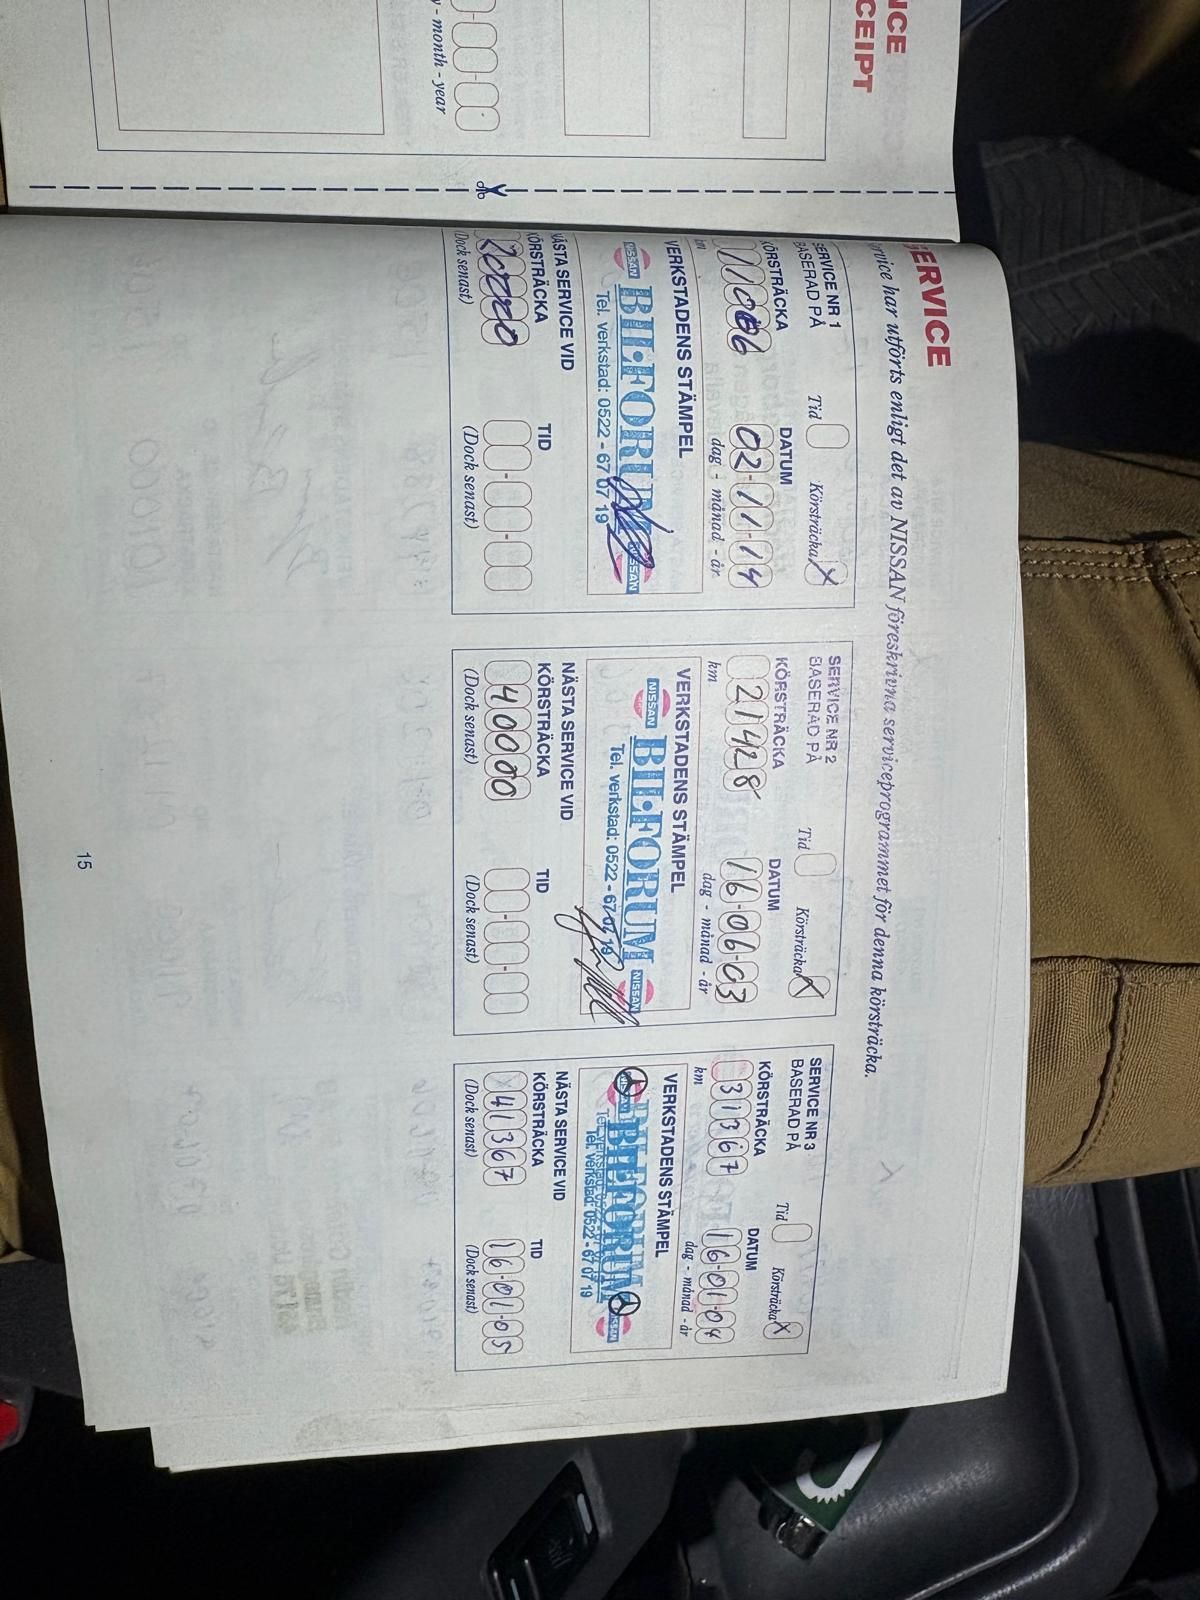 NCE
CEIPT
y - month - year
SERVICE
ervice har utförts enligt det av NISSAN föreskrivna serviceprogrammet för denna körsträcka.
SERVICE NR 1
BASERAD PÅ
Tid
Körsträcka X
KÖRSTRÄCKA
DATUM
02-11-14
km
dag - månad - år
VERKSTADENS STÄMPEL
NISSAN BIL•FORUM NISSAN
Tel. verkstad: 0522 - 67 07 19
NÄSTA SERVICE VID
KÖRSTRÄCKA
TID
20000
(Dock senast)
(Dock senast)
SERVICE NR 2
BASERAD PÅ
Tid
Körsträcka X
KÖRSTRÄCKA
DATUM
21428
16-06-03
km
dag - månad - år
VERKSTADENS STÄMPEL
NISSAN BIL•FORUM NISSAN
Tel. verkstad: 0522 - 67 07 19
NÄSTA SERVICE VID
KÖRSTRÄCKA
TID
40000
(Dock senast)
(Dock senast)
SERVICE NR 3
BASERAD PÅ
Tid
Körsträcka X
KÖRSTRÄCKA
DATUM
31367
16-01-04
km
dag - månad - år
VERKSTADENS STÄMPEL
NISSAN BIL•FORUM NISSAN
Tel. verkstad: 0522 - 67 07 19
NÄSTA SERVICE VID
KÖRSTRÄCKA
TID
41367
16-01-05
(Dock senast)
(Dock senast)
15